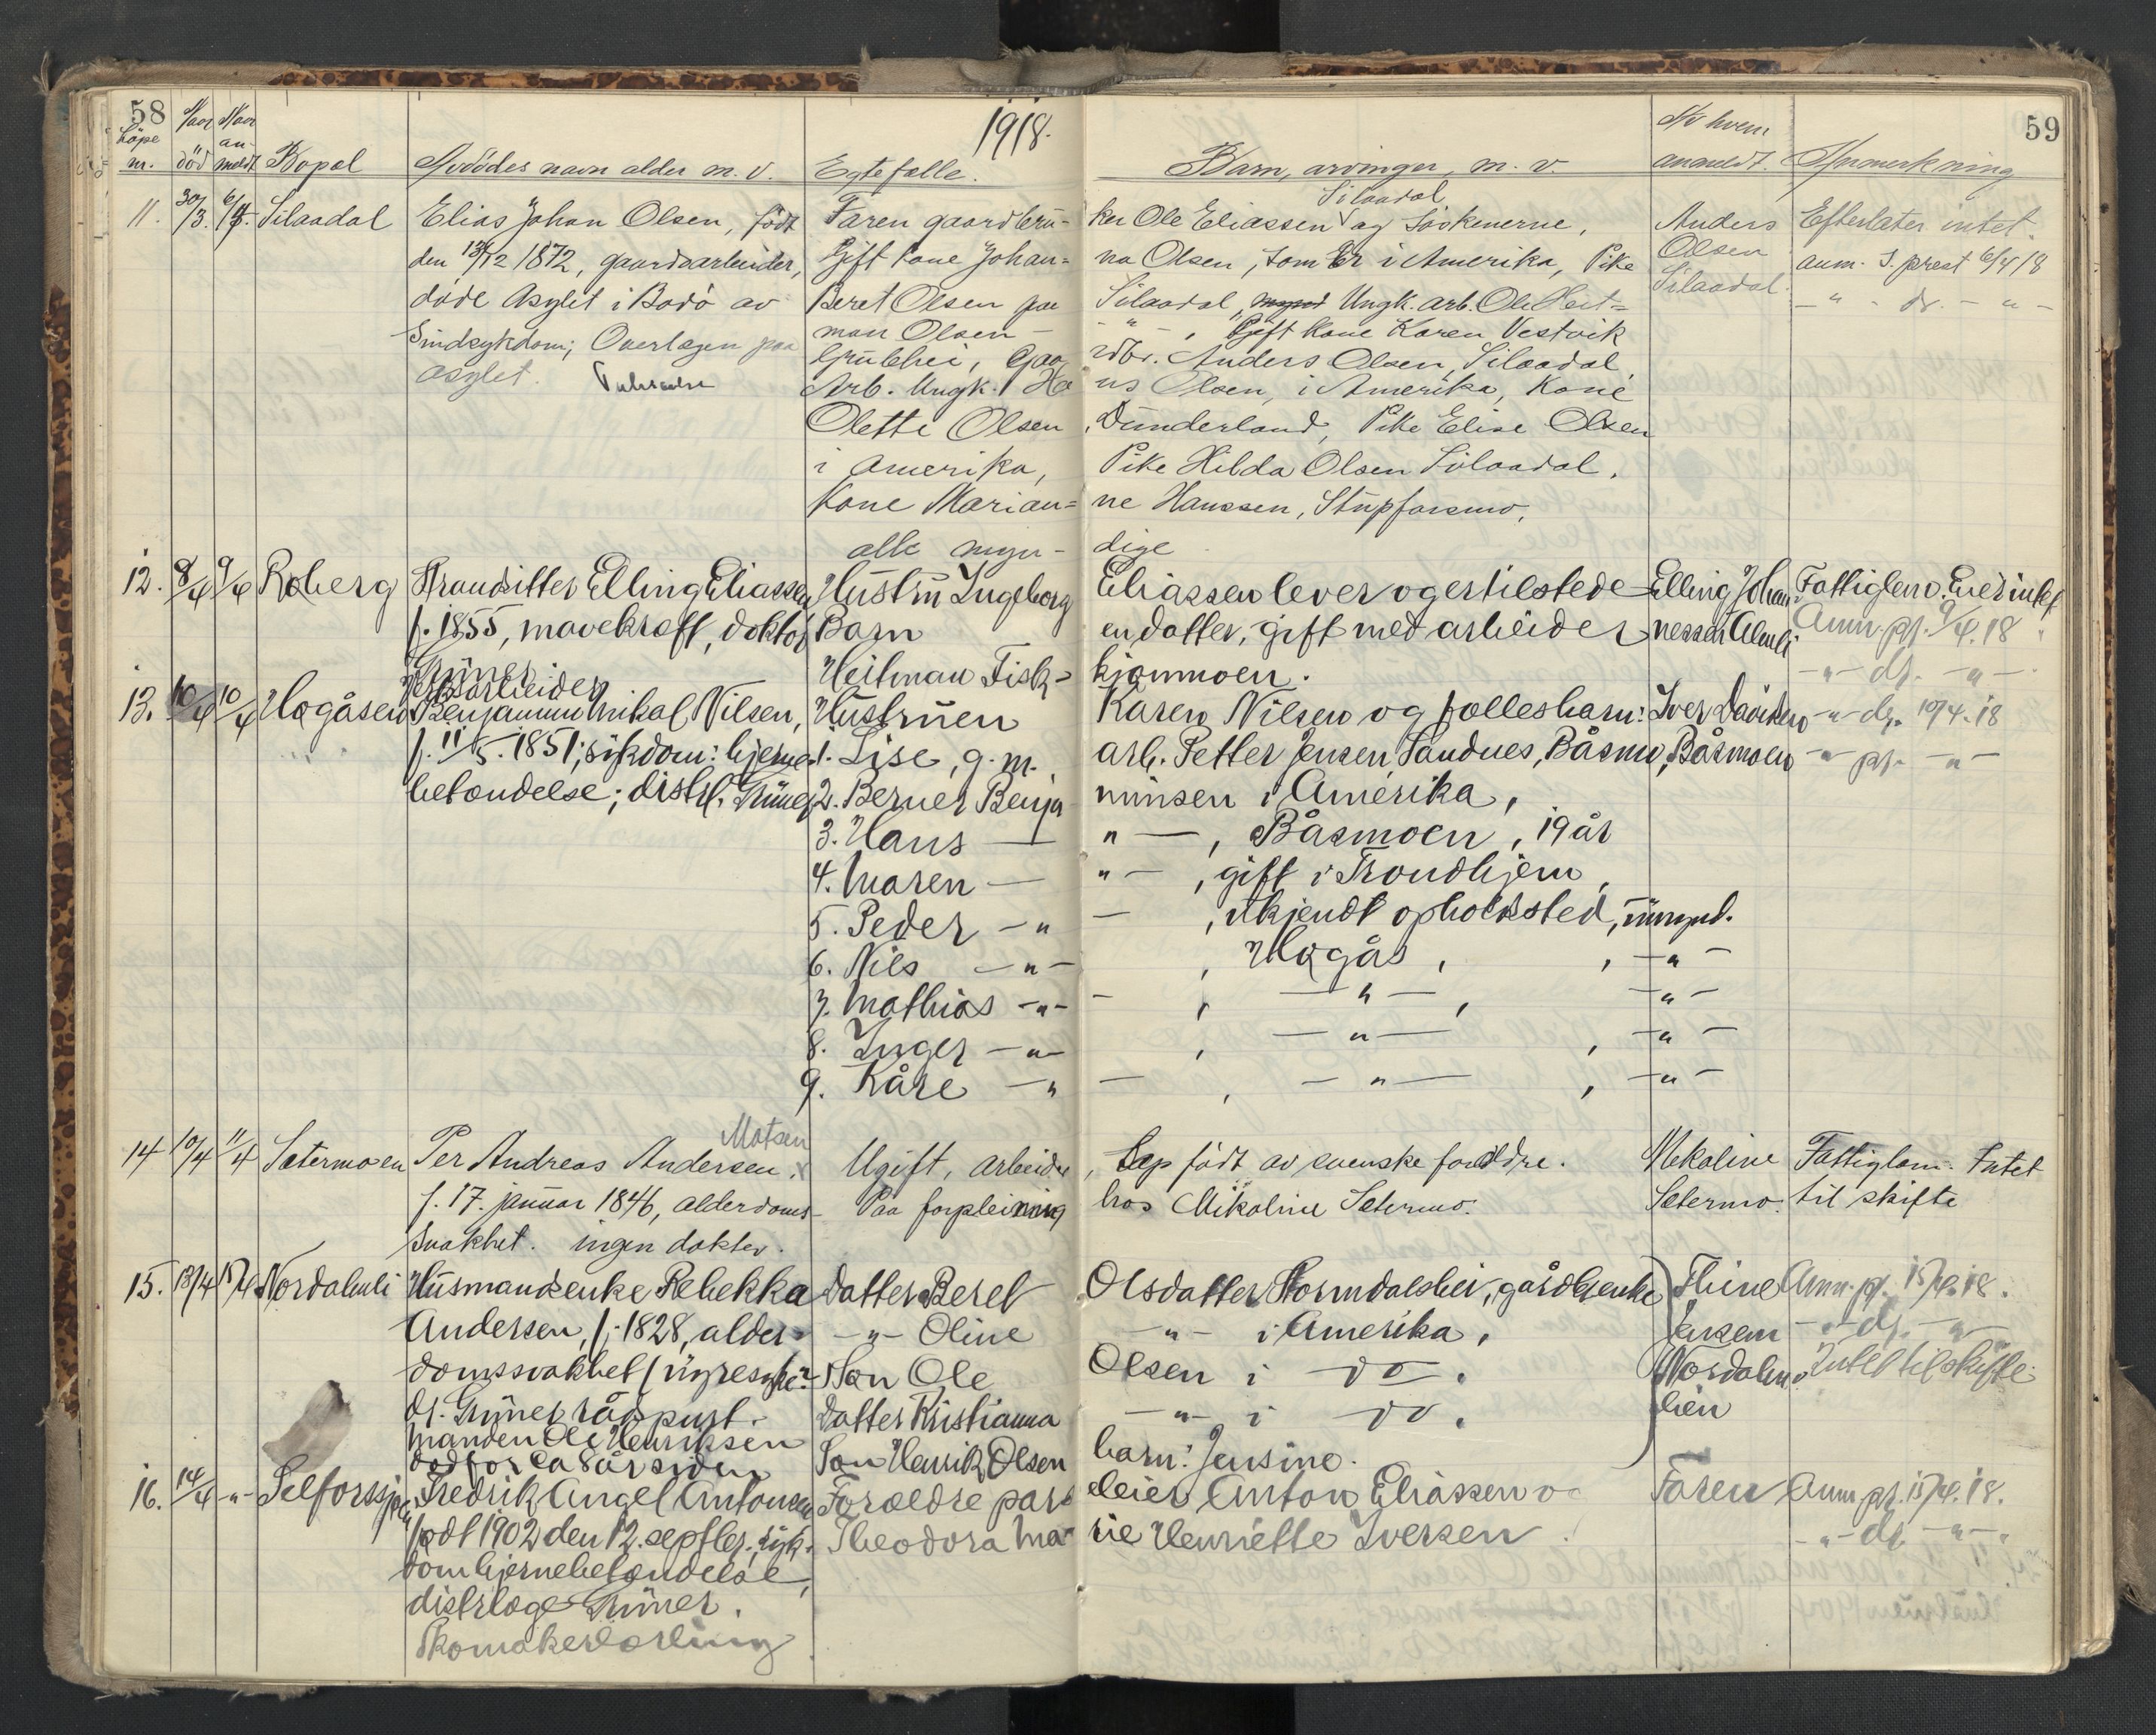 58 Naar Naar 1918. Av hvem 59
Löpe nr. död an- meldt Bopel Avdödes navn alder m. v. Egtefelle. Barn, arvinger, m. v. anmeldt. Anmerkning
Silaadal
11. 30/3. 6/4. Silaadal Elias Johan Olsen, födt Faren gaardbru- ker Ole Eliassen og Söskenerne, Anders Efterlater intet.
den 13/12 1872, gaardsarbeider, Gift kone Johan= na Olsen, som er i Amerika, Pike Olsen anm. S. prest 6/4 18
döde Asylet i Bodö av Beret Olsen paa Silaadal, Ungk. arb. Ole Heit= Silaadal. - " - dr. - " -
Sindsykdom; Overlægen paa man Olsen - - " - , Gift Kone Karen Vestvik
asylet. Grubhei, Gaa rdbr. Anders Olsen, Silaadal,
Arb. Ungk. Ha ns Olsen, i Amerika, Kone
Olette Olsen , Dunderland, Pike Elise Olsen
i Amerika, Pike Hilda Olsen Silaadal,
Kone Marian= ne Hanssen, Stupforsmo,
alle myn- dige
12. 8/4 9/4 Roberg Strandsitter Elling Eliassen Hustru Ingeborg Eliassen lever og er tilstede Elling Johan- Fattiglem. Eier intet
f. 1855, mavekræft, doktor Barn en datter, gift med arbeider nessen Alenli Anm. pr. 9/4. 18
Grüner Heitman Fisk- kjønmoen. - " - dr. - " -
Verksarbeider
13. 10/4 10/4 Hogåsen Benjamin Mikal Nilsen, Hustruen Karen Nilsen og fællesbarn: Iver Davidsen - " - dr. 10/4. 18
f. 11/5. 1851; sykdom: hjerne- 1. Lise, g. m. arb. Petter Jensen, Sandnes, Båsmo, Båsmoen - " pr. - " -
betændelse; distrl. Grüner 2. Berner Benja minsen i Amerika,
3. Hans — " — , Båsmoen, 19 år
4. Maren — " — , gift i Trondhjem,
5. Peder — " — , ukjendt opholdssted, umynd.
6. Nils — " — , Hogås , , — " —
7. Mathias — " — — , — " — , — " —
8. Inger — " — , — " — , — " —
9. Kåre — " — , — " — , — " —
Matsen
14 10/4 11/4 Setermoen Per Andreas Andersen. x Ugift, arbeider , Lap födt av svenske forældre. Mekaline Fattiglem. Intet
f. 17. januar 1846, alderdoms- Paa forpleining hos Mikaline Setermo. Setermo. til skifte
svakhet. ingen doktor.
15. 13/4 15/4 Nordalenli Husmandsenke Rebekka Datter Beret Olsdatter Stormdalshei, gårdbrenke Thine Anm. pr. 15/4. 18.
Andersen, f. 1828, alder- - " - Oline - " - i Amerika, Jensen - " - dr. - " -
domssvakhet Søn Ole Olsen i do. Nordalen Intet til skifte
dr. Grüner rådspurt. Datter Kristianna - " - i do. lien
manden Ole Henriksen Søn Henrik Olsen barn: Jensine.
død for ca 8 år siden
16. 14/4 - " - Selforssjøen Fredrik Angel Antonsen Foreldre pars eleier Anton Eliassen og Faren Anm. pr. 15/4. 18.
født 1902 den 12. septbr. Syk- Theodora Ma- rie Henriette Iversen - " - dr. - " -
dom hjernebetændelse,
distrlæge Grüner.
Skomakerlærling